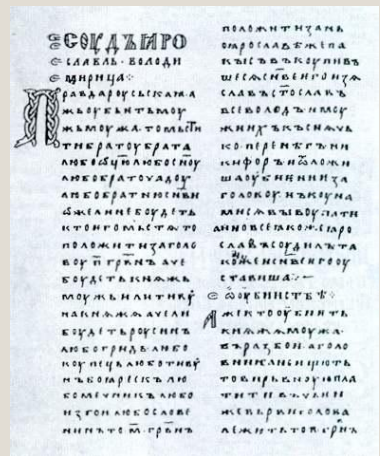 СОУДЪ ꙖРО
СЛАВЛЬ · ВОЛОДИ
МИРИЦА ·
ПРАВДА РОУСЬСКАꙖ · А
ЖЬ ОУБЬИТЬ МОУ
ЖЬ МОУЖА · ТО МЬСТИ
ТИ БРАТОУ БРАТА
ЛЮБО
ЛЮБО БРАТОУЧАДОУ
ЛЮБО БРАТНЮ
БОУДЕТЬ
КТО ИГО МЬСТѦ ТО
ПОЛОЖИТИ ЗА ГОЛО
ВОУ · П҃ · ГРВ҃НЪ АЧЕ
БОУДЕТЬ КНѦЖЬ
МОУЖЬ ИЛИ
КНѦЖѦ АЧЕ ЛИ
БОУДЕТЬ РОУСИНЪ
ЛЮБО ГРИДЬ · ЛЮБО
КОУПЕЦЬ ЛЮБО ТИВОУ
НЪ БОꙖРЕСКЪ ЛЮ
БО МЕЧНИКЪ ЛЮБО
ИЗГОИ ЛЮБО СЛОВЕ
НИНЪ ТО · М҃ · ГРВ҃НЪ
ПОЛОЖИТИ ЗА НЬ
ПО ꙖРОСЛАВѢ ЖЕ ПА
КЫ СЪВЪКОУПИВЪ
ШЕСѦ СН҃ВЕ ИГО ИЗѦ
СЛАВЪ СТ҃ОСЛАВЪ
ВСЕВОЛОДЪ И МОУ
ЖИ ИХЪ КЪСНѦЧЬ
КО · ПЕРЕНѢГЪ НИ
КИФОРЪ И ѾЛОЖИ
ША ОУБИИНИИ ЗА
ГОЛОВОУ · НЪ КОУНА
МИ СѦ ВЫКОУПАТИ
А ИНО ВСЕ ꙖКОЖЕ ꙖРО
СЛАВЪ СОУДИЛЪ ТА
КОЖЕ И СН҃ВЕ ИГО ОУ
СТАВИША ·
О ОУБИИСТВѢ ·
АЖЕ КТО ОУБИИТЬ
КНѦЖѦ МОУЖА ·
ВЪ РАЗБОИ · А ГОЛО
ВНИКА НЕ ИЩЮТЬ
ТО ВИРЬВНОУЮ ПЛА
ТИТИ ВЪ ЧЬИИ
ЖЕ ВЬРВИ ГОЛОВА
ЛЕЖИТЬ ТО П҃ ГРВ҃НЪ